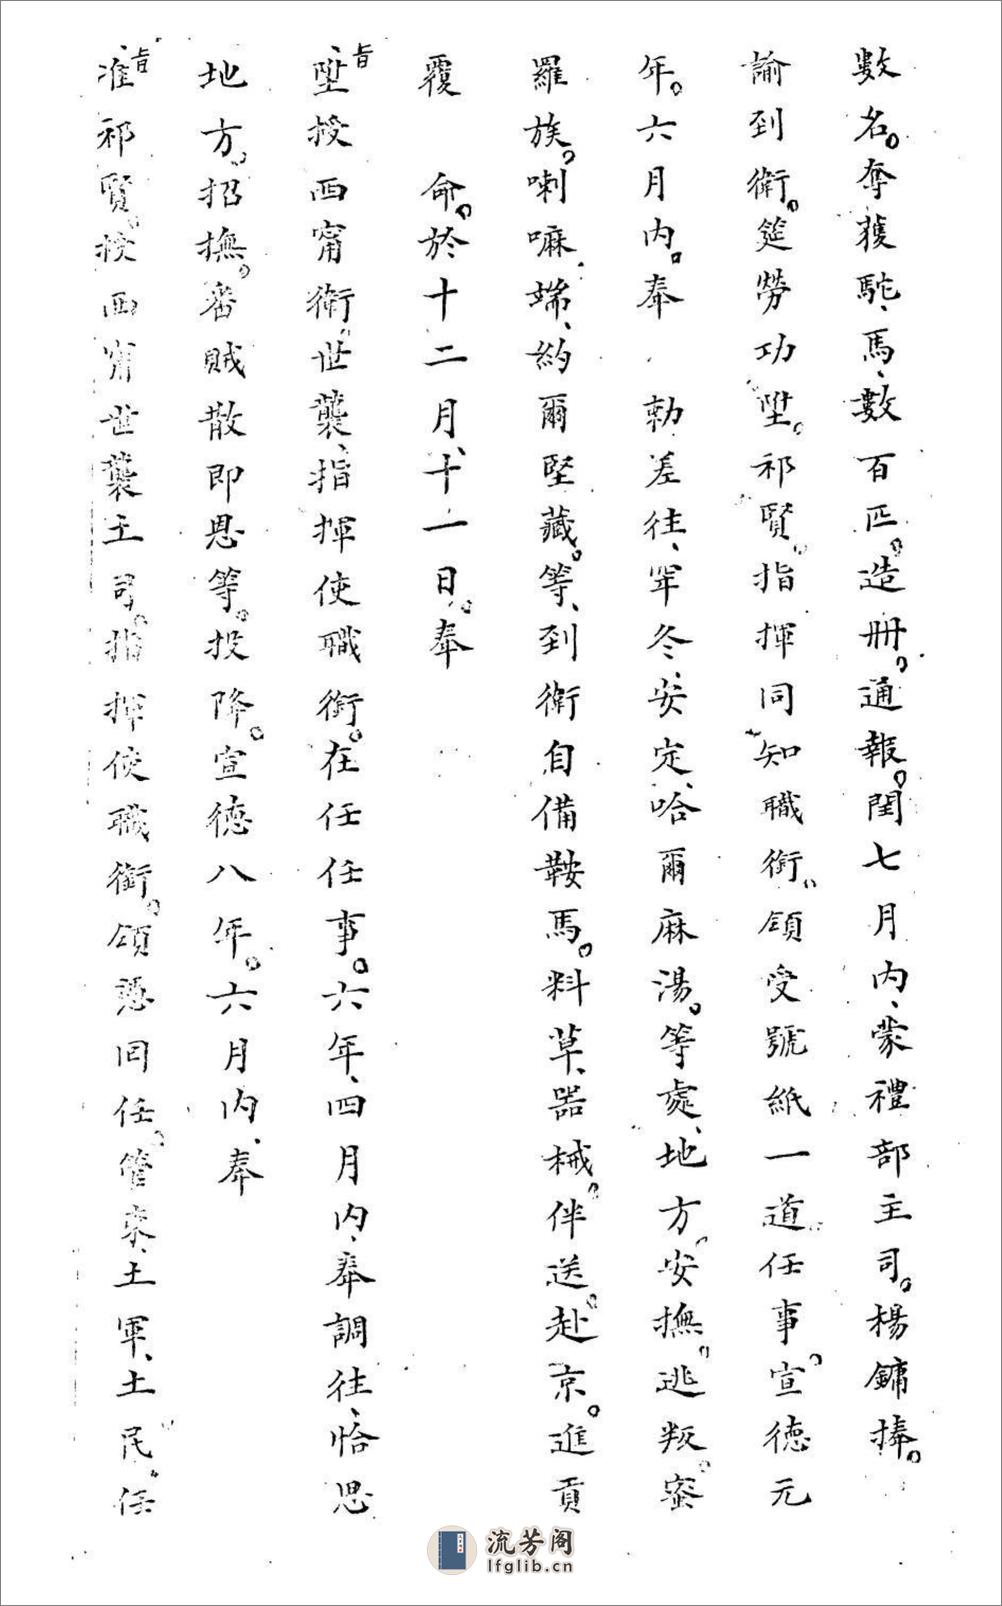 數名。奪獲駝、馬、數百匹。造冊。通報。閏七月內、蒙禮部主司。楊鏞捧。
諭到衛。筵勞功陞。祁賢。指揮同知職銜。領受號紙一道。任事。宣德元
年。六月內。奉　勅差往、罕冬、安定、哈爾麻湯。等處、地方。安撫。逃叛。蜜
羅族。喇嘛、端、約爾堅藏。等、到衛自備鞍馬。料草、器械。伴送。赴京。進貢
覆　命。於十二月、十一日。奉
旨、陞授西甯衛。世襲、指揮使職銜。在任任事。六年、四月內、奉調往、恰思
地方。招撫。番賊散即思等。投降。宣德八年。六月內、奉
旨、准祁賢。授西甯世襲土司。指揮使職銜。領憑回任。管束、土軍、土民。任
流芳阁
lfglib.cn